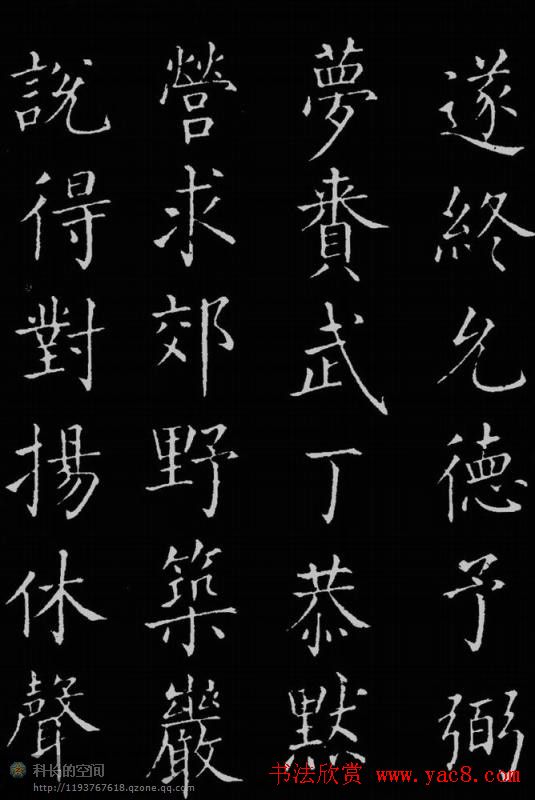 遂終允德予弼
夢賚武丁恭默
營求郊野築巖
說得對揚休聲
科长的空间
http://1193767618.qzone.qq.com
书法欣赏 www.yac8.com